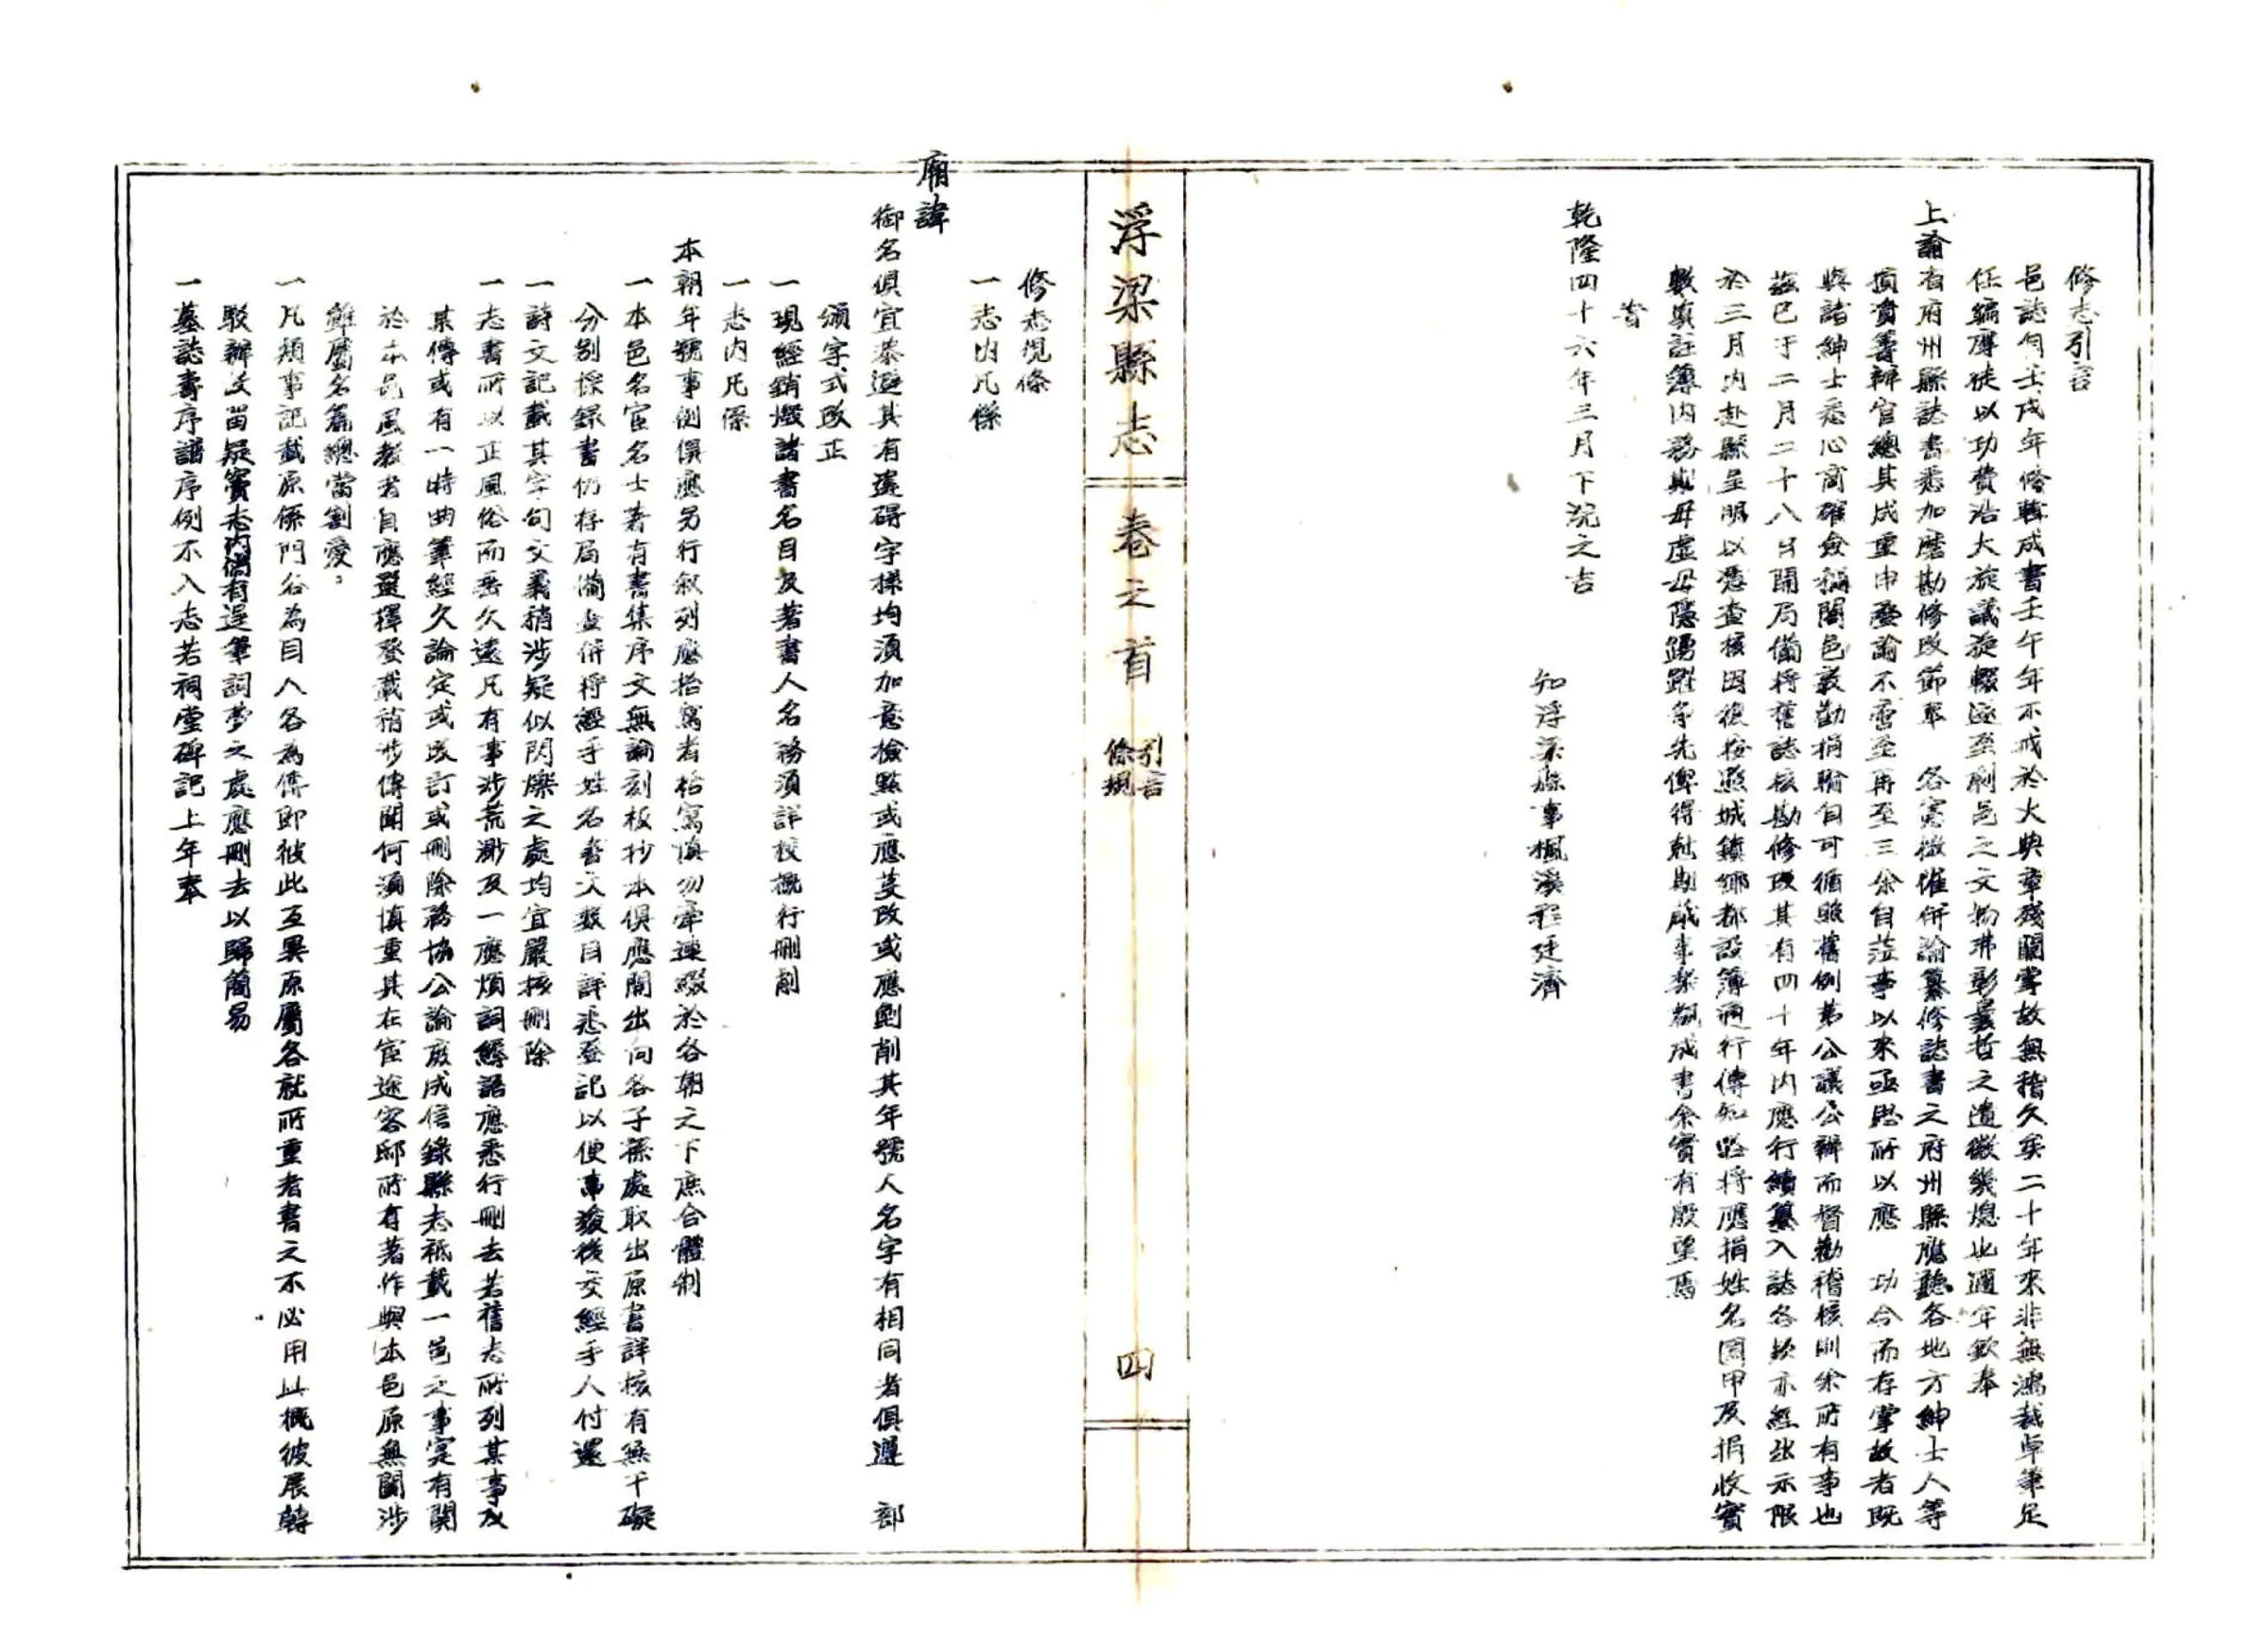 修志引言
邑誌自壬戌年修輯成書壬午年不戒於火典章殘闕掌故無稽久矣二十年來非無鴻裁卓筆足
任編摩徒以功費浩大旋議旋輟遂至闔邑之文物弗彰曩哲之遺徽幾熄也邇年欽奉
上諭有府州縣誌書悉加磨勘修改節奉 各憲檄催併諭纂修誌書之府州縣應聽各地方紳士人等
捐資籌辦官總其成重申憲諭不啻至再至三余自蒞事以來亟思所以應 功令而存掌故者既
與諸紳士悉心商確僉稱闔邑義勸捐輸自可循照舊例第公議公辦而督勸稽核則余所有事也
茲已于二月二十八日開局備將舊誌核勘修改其有四十年內應行續纂入誌各款亦經出示限
於三月內赴縣呈明以憑查核因複按照城鎮鄉都設簿通行傳知將應捐姓名圖甲及捐收實
數填註簿內務期毋虛毋隱踴躍爭先俾得尅期蕆事樂觀成書余實有殷望焉
旹
乾隆四十六年三月下浣之吉
知浮梁縣事楓溪程廷濟
浮梁縣志 卷之首 引言 條規 四
修志規條
一志內凡係
廟諱
御名俱宜恭避其有違碍字樣均須加意檢點或應芟改或應剷削其年號人名字有相同者俱遵 部
頒字式改正
一現經銷燬諸書名目及著書人名務須詳校概行刪削
一志內凡係
本朝年號事例俱應另行敘列應抬寫者抬寫慎勿牽連綴於各朝之下庶合體制
一本邑名宦名士著有書集序文無論刻板抄本俱應開出向各子孫處取出原書詳核有無干礙
分別採錄書仍存局備查併將經手姓名書文數目詳悉登記以便事竣後交經手人付還
一詩文記載其字句文義稍涉疑似閃爍之處均宜嚴核刪除
一志書所以正風俗而垂久遠凡有事涉荒渺及一應煩詞縟語應悉行刪去若舊志所列某事及
某傳或有一時曲筆經久論定或改訂或刪除務協公論庶成信錄縣志祗載一邑之事寔有關
於本邑風教者自應選擇登載稍涉傳聞何須慎重其在宦途客邸所有著作與本邑原無關涉
雖屬名篇總當割愛。
一凡類事記載原係門各為目人各為傳即彼此互異原屬各就所重者書之不必用此概彼展轉
駁辦反留疑竇志內偶有逞筆詞費之處應刪去以歸簡易
一墓誌壽序譜序例不入志若祠堂碑記上年奉